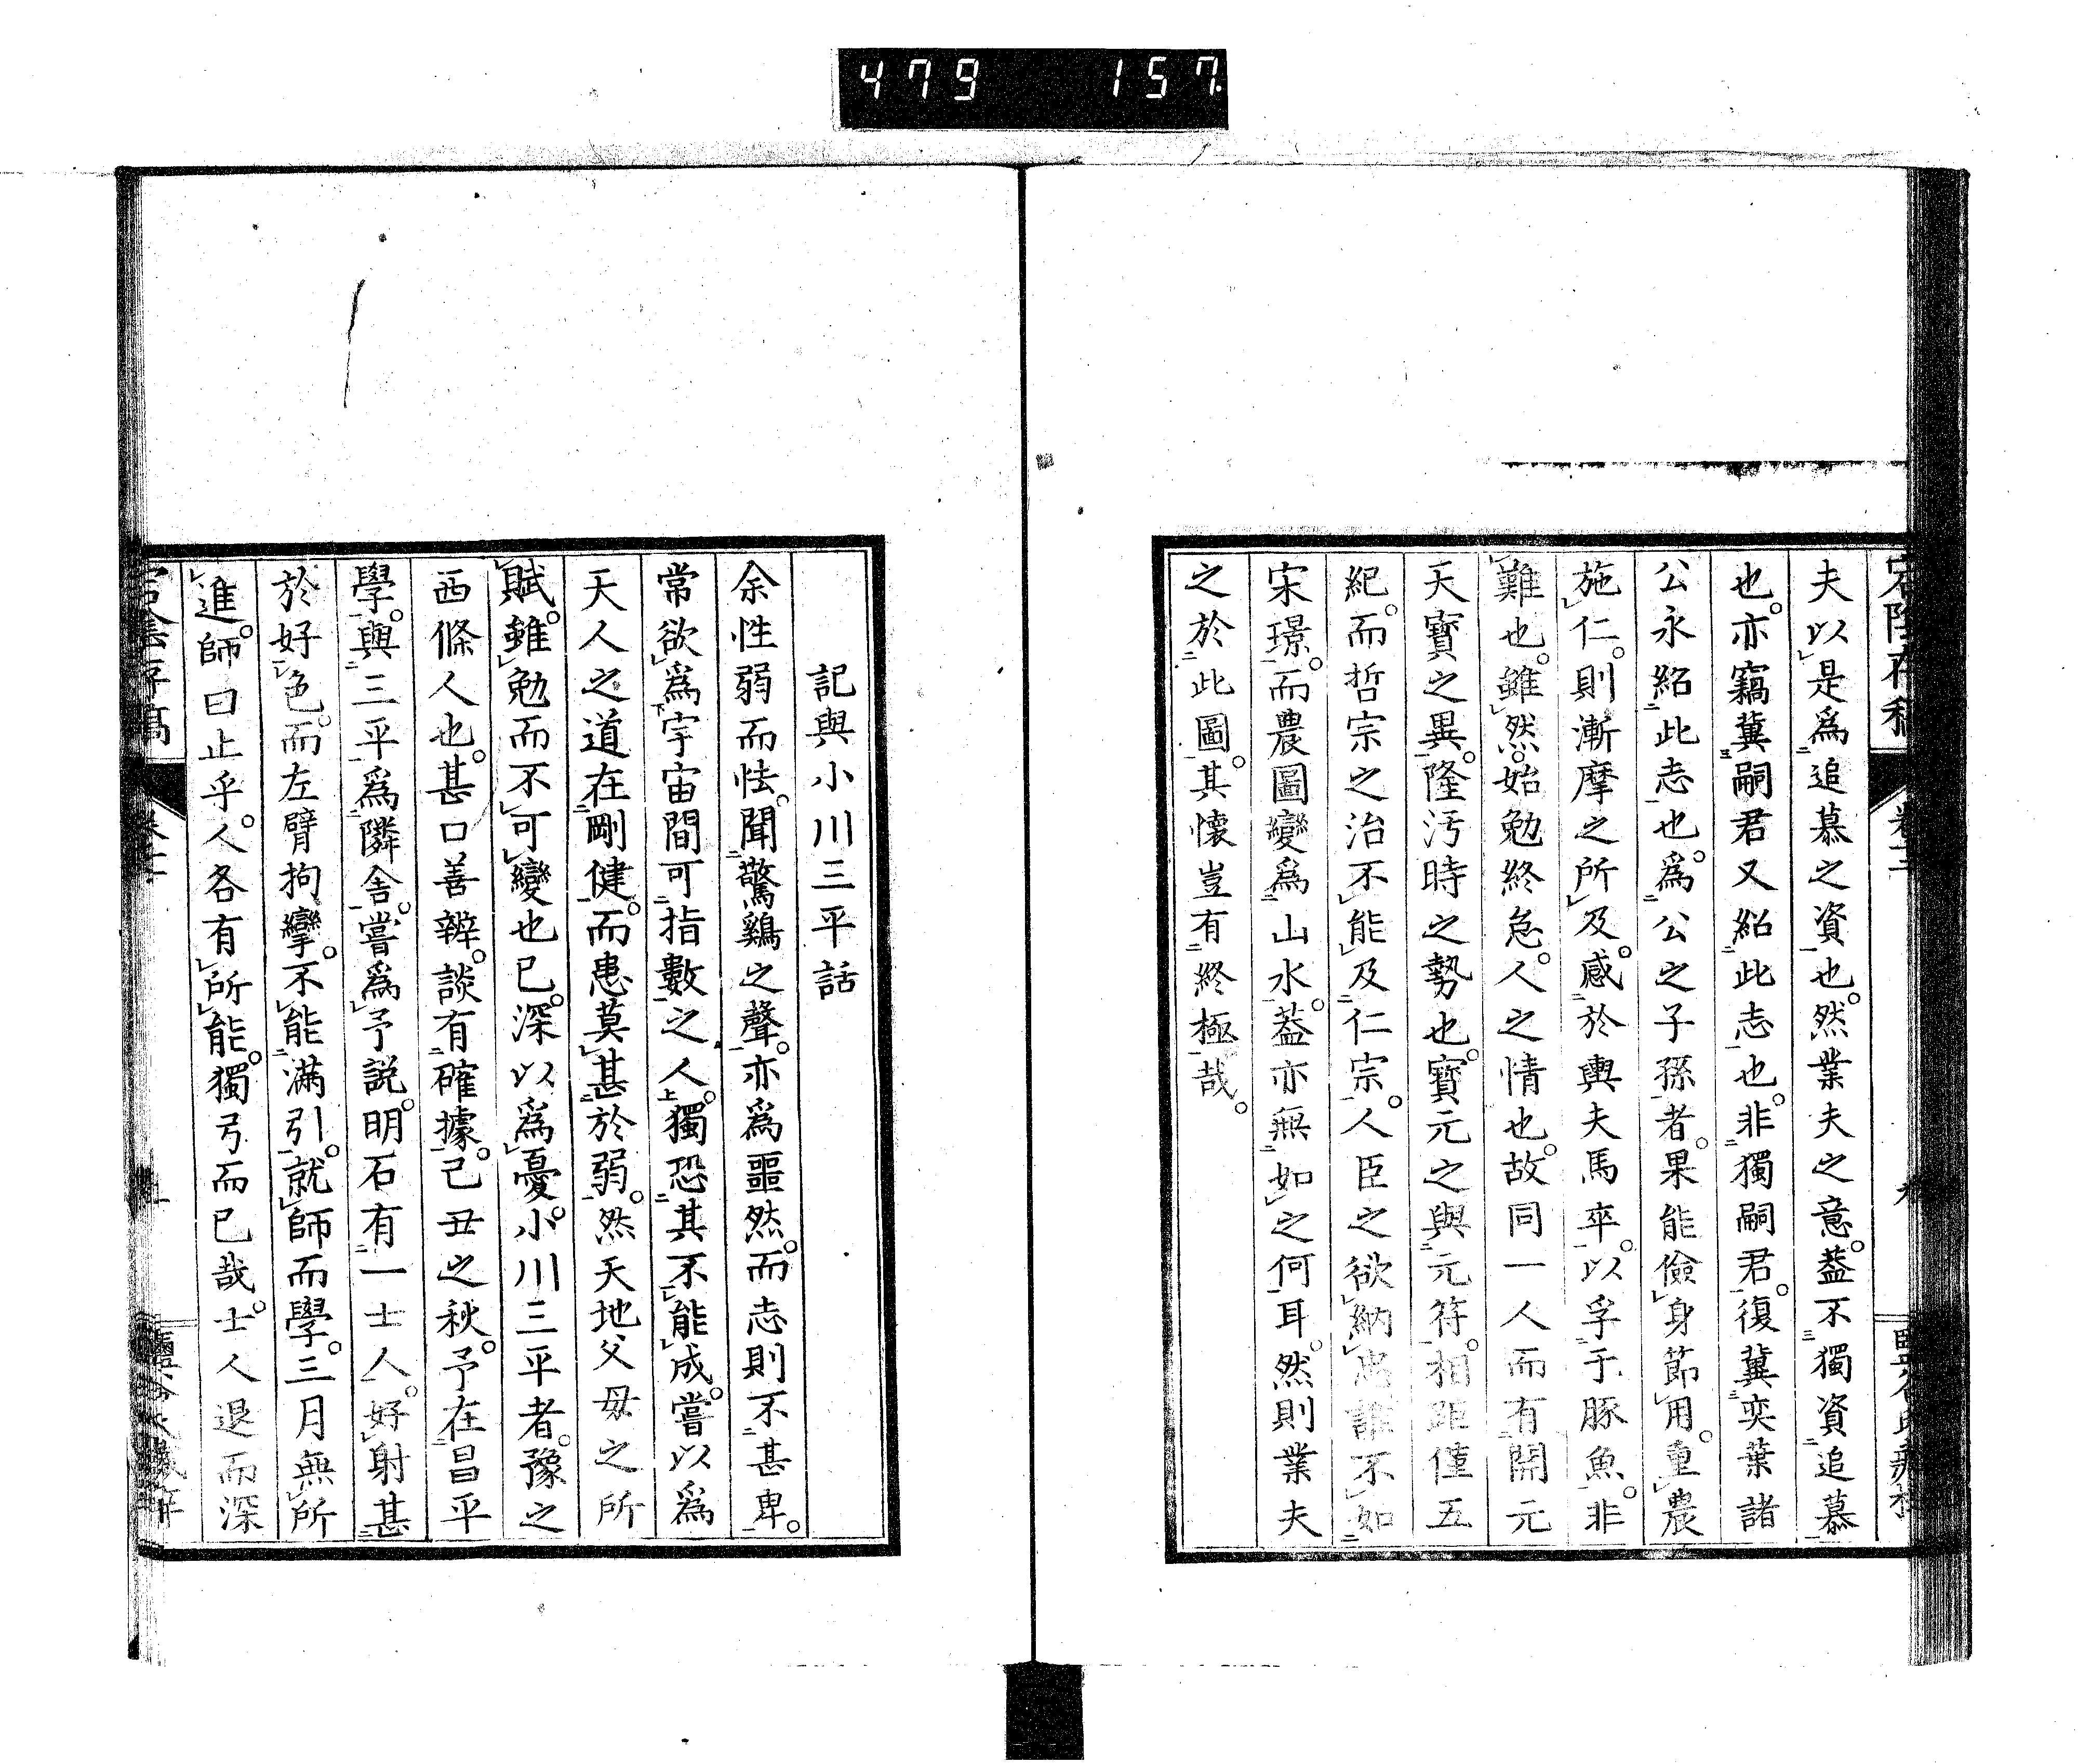 479 157
夫以是爲追慕之資也。然業夫之意。葢不獨資追慕
也。亦竊冀嗣君又紹此志也。非獨嗣君。復冀奕葉諸
公永紹此志也。爲公之子孫者。果能儉身節用。重農
施仁。則漸摩之所及。感於輿夫馬卒。以孚于豚魚。非
難也。雖然。始勉終怠。人之情也。故同一人而有開元
天寶之異。隆汚時之勢也。寶元之與元符。相距僅五
紀。而哲宗之治不能及仁宗。人臣之欲納忠誰不如
宋璟。而農圖變爲山水。葢亦無如之何耳。然則業夫
之於此圖。其懷豈有終極哉。
記與小川三平話
余性弱而怯。聞驚鷄之聲。亦爲噩然。而志則不甚卑。
常欲爲宇宙間可指數之人。獨恐其不能成。嘗以爲
天人之道在剛健。而患莫甚於弱。然天地父母之所
賦。雖勉而不可變也已。深以爲憂。小川三平者。豫之
西條人也。甚口善辨。談有確據。己丑之秋。予在昌平
學。與三平爲隣舎。嘗爲予説。明石有一士人。好射甚
於好色。而左臂拘攣。不能滿引。就師而學。三月無所
進。師曰止乎。人各有所能。獨弓而已哉。士人退而深